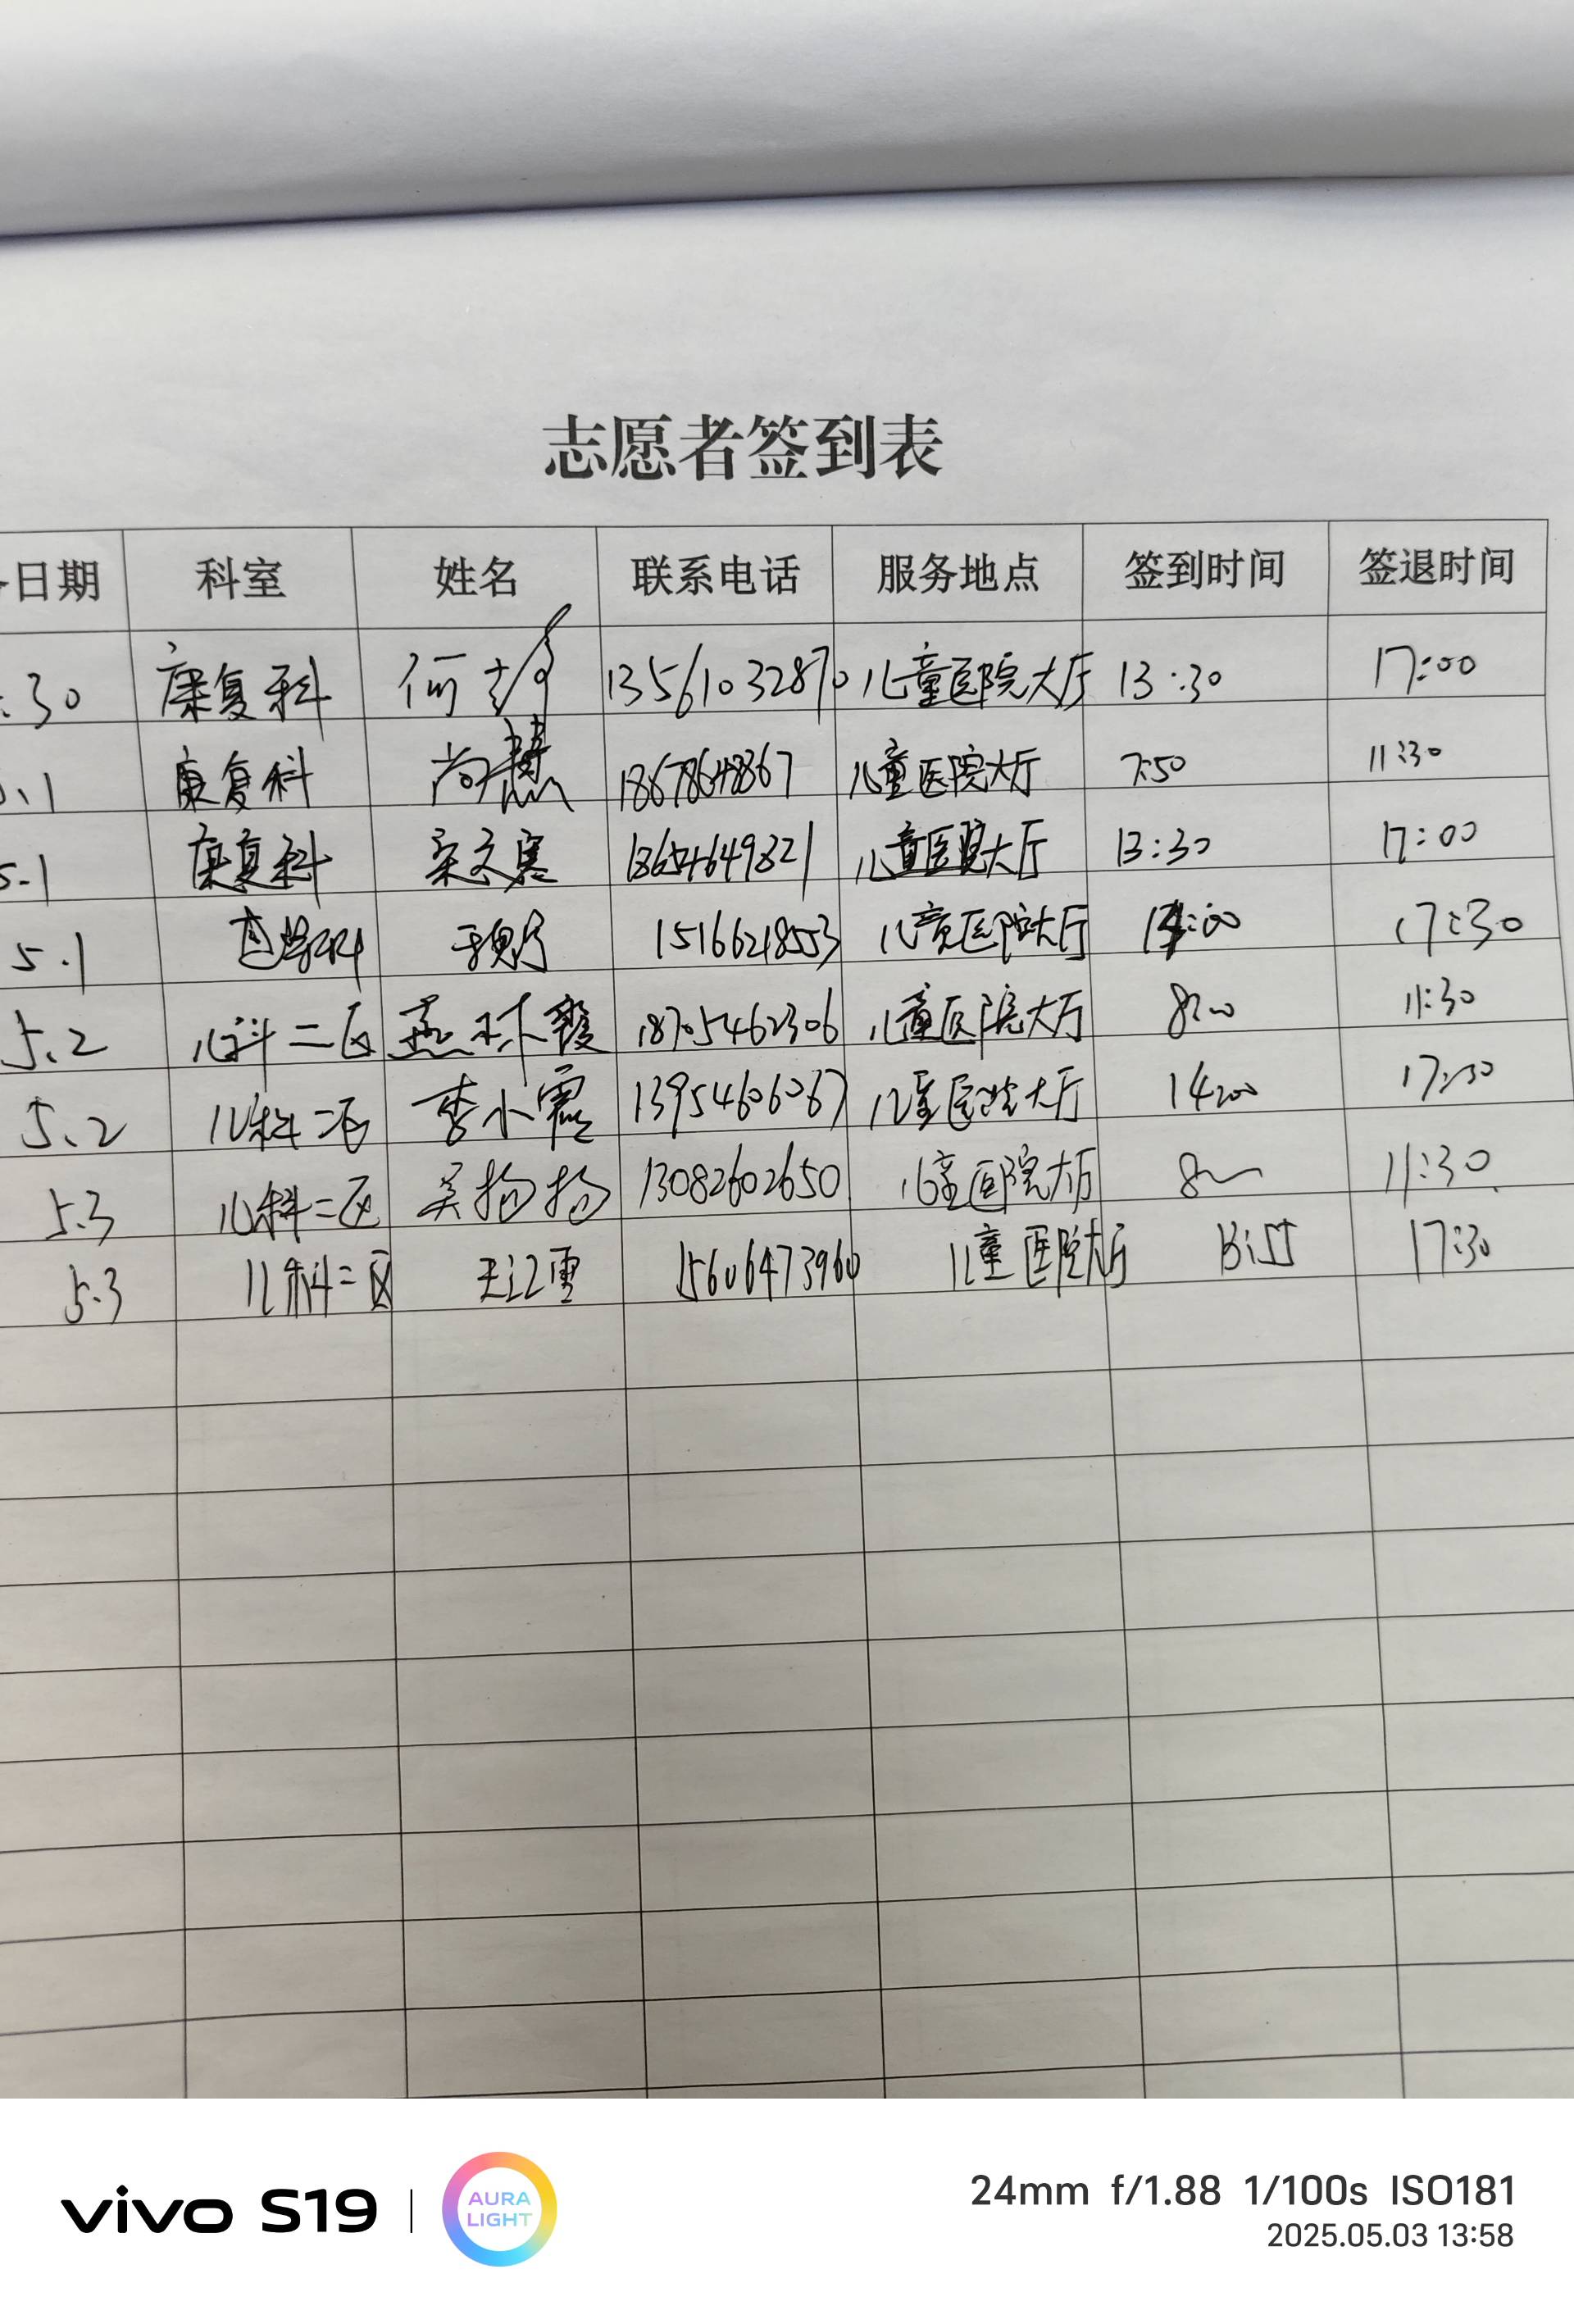 志愿者签到表
日期 科室 姓名 联系电话 服务地点 签到时间 签退时间
:30 康复科 何 13561032870 儿童医院大厅 13:30 17:00
.1 康复科 尚慧 18678648367 儿童医院大厅 7:50 11:30
5.1 康复科 18654649821 儿童医院大厅 13:30 17:00
5.1 15166218553 儿童医院大厅 14:00 17:30
5.2 儿科二区 燕 霞 18705462306 儿童医院大厅 8:00 11:30
5.2 儿科二区 李小霞 13954606067 儿童医院大厅 14:00 17:30
5.3 儿科二区 吴 13082602650 儿童医院大厅 8 11:30
5.3 儿科二区 王 雪 15606473960 儿童医院大厅 17:30
vivo S19
AURA
LIGHT
24mm f/1.88 1/100s ISO181
2025.05.03 13:58